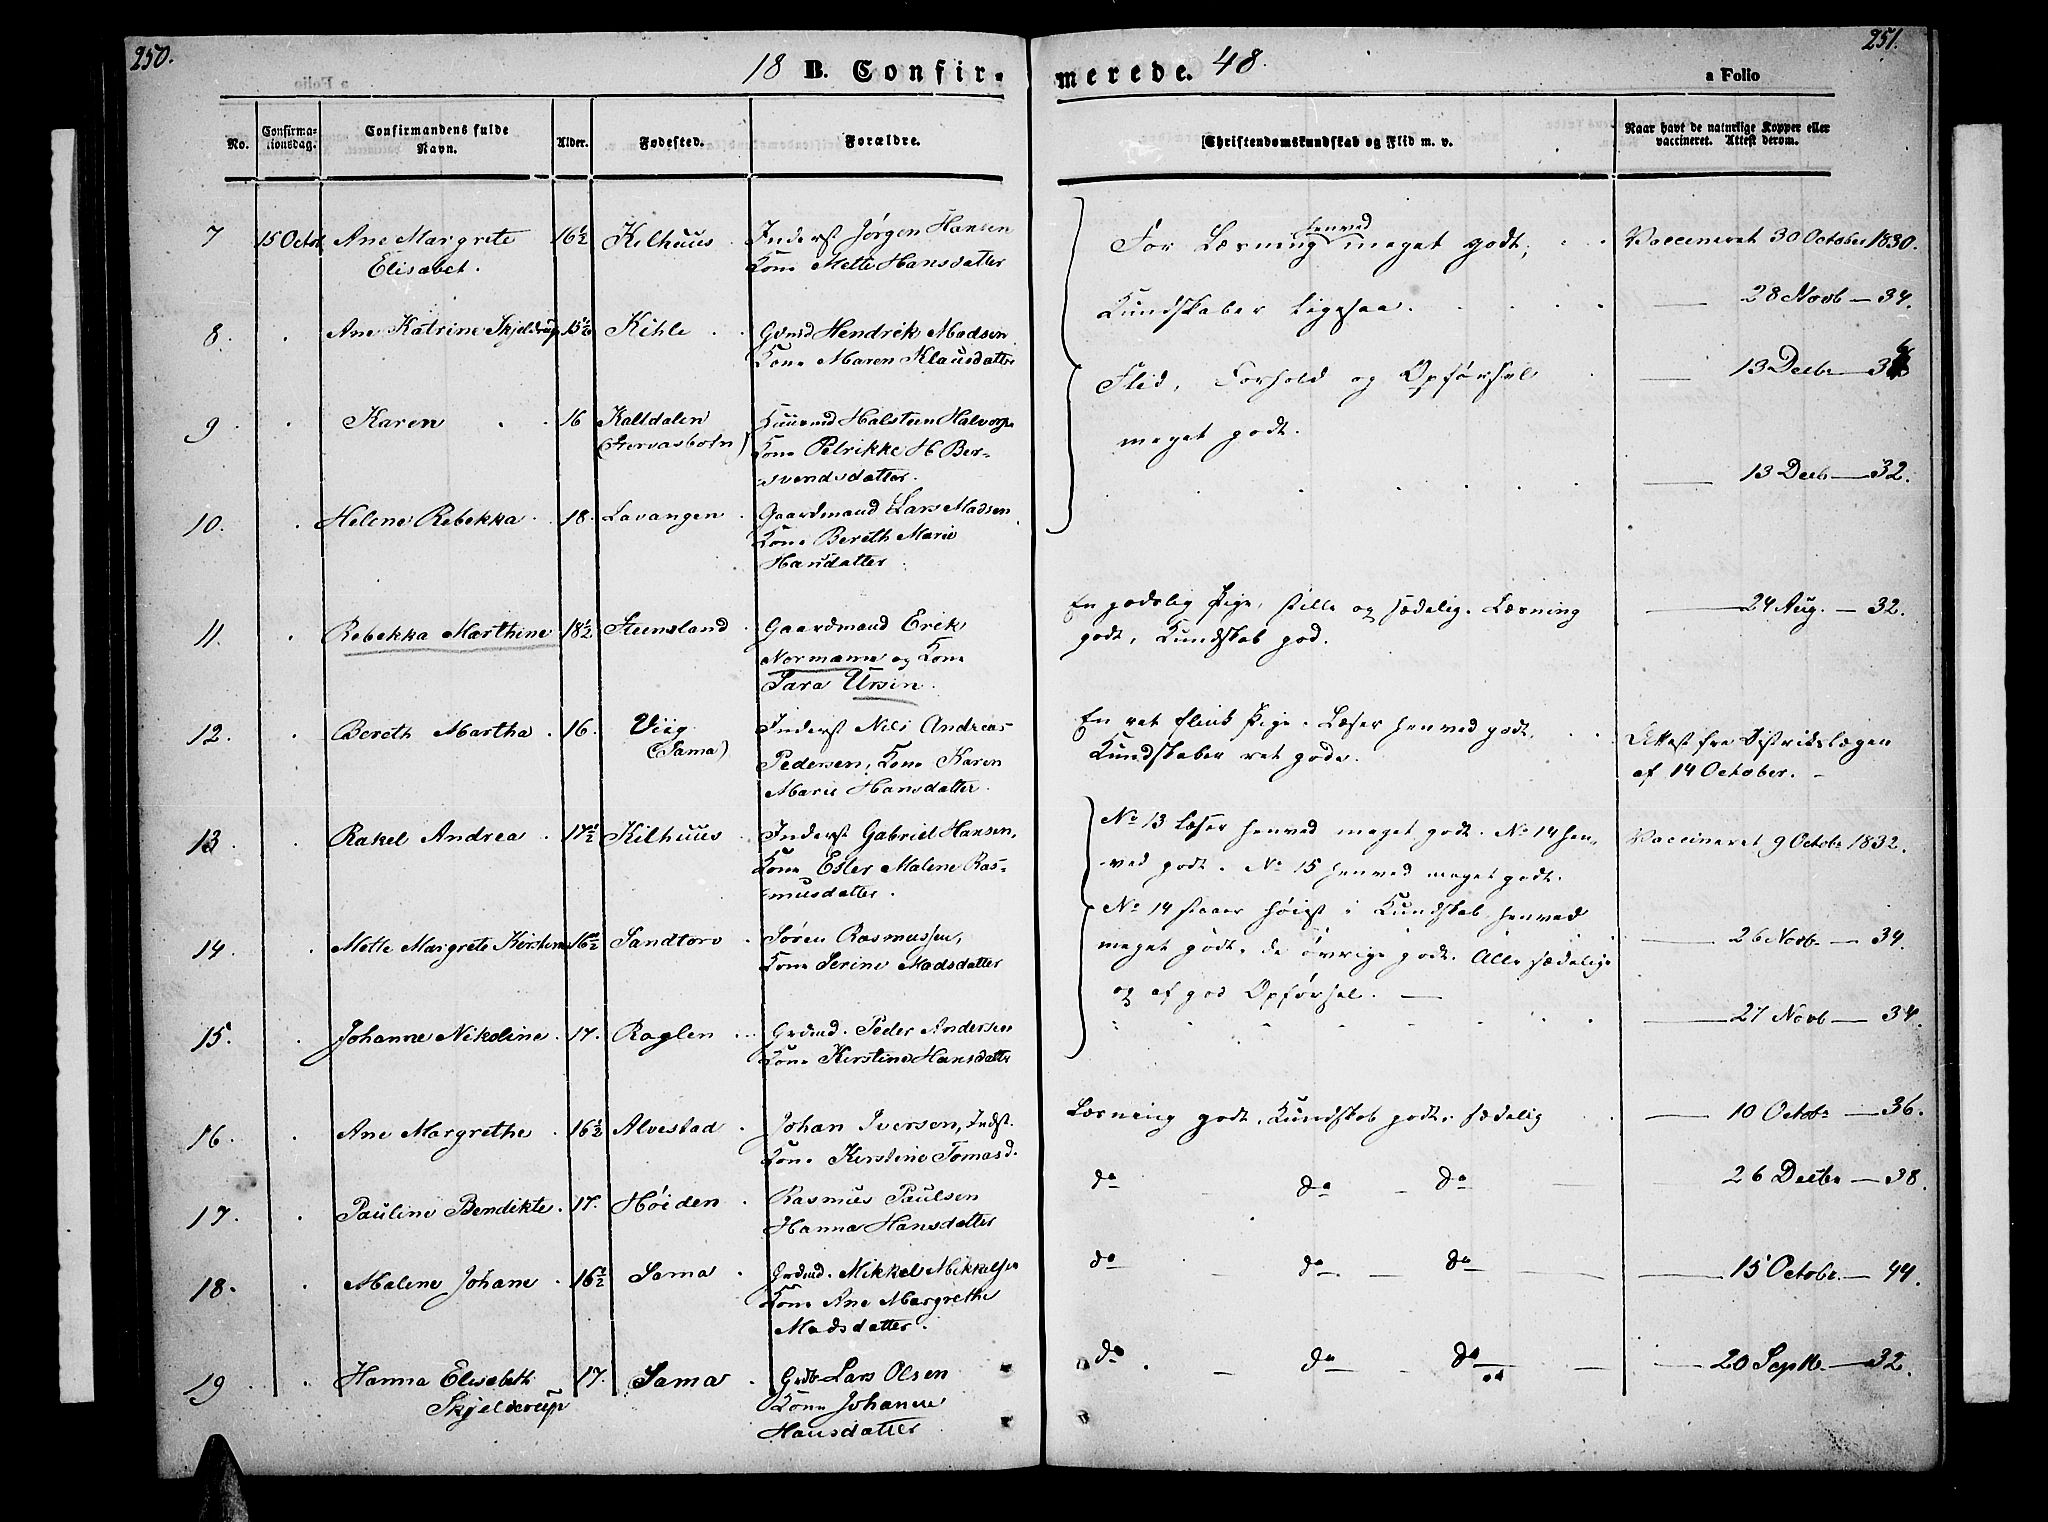 250.
251.
18 B. Confirmerede. 48.
a Folio
No.
Confirmationsdag.
Confirmandens fulde Navn.
Alder.
Fødested.
Forældre.
Christendomskundskab og Flid m. v.
Naar havt de naturlige Kopper eller
vaccineret. Attest derom.
7 15 Octor Ane Margrete 16½ Kilhuus Inderst Jørgen Hansen
Elisabet. Kone Mette Hansdatter
For Læsning henved meget godt, Vaccineret 30 October 1830.
Kundskaber ligesaa.
8. Ane Katrine Skjeldrup 15½ Kihle Gdmd Hendrik Madsen
Kone Maren Klausdatter
28 Novb — 34.
Flid, Forhold og Opførsel
meget godt.
13 Decbr — 36
9 Karen 16 Kaltdalen Huusmd Halsteen Halvors
(Gervasbotn) Kone Petrikke H Ber-
svendsdatter.
13 Decb — 32.
10. Helene Rebekka 18. Lavangen Gaardmand Lars Madsen
Kone Bereth Marie
Hansdatter
24 Aug. — 32.
11. Rebekka Marthine 18½ Steensland Gaardmand Erik
Normann og Kone
Sara Ursin.
En godslig Pige, stille og sædelig. Læsning
godt, Kundskab god.
12. Bereth Martha 16. Viig Inderst Nils Andreas
(Sama) Pedersen, Kone Karen
Marie Hansdatter.
En ret flink Pige. Læser henved godt,
Kundskaber ret gode.
Attest fra Distriktslægen
af 14 October.
13 Rakel Andrea 17½ Kilhuus Inderst Gabriel Hansen,
Kone Ester Malene Ras-
musdatter.
No 13 Læser henved meget godt. No 14 hen-
ved godt. No 15 henved meget godt.
Vaccineret 9 Octobr 1832.
No 14 staaer høiest i Kundskab, henved
meget godt, de øvrige godt. Alle sædelige
og af god Opførsel.
14. Mette Margrete Kirstine 16½ Sandtorv Søren Rasmussen,
Kone Serine Madsdatter
26 Novb — 34.
15. Johanne Nikoline 17. Roglen Grdmd. Peder Andersen
Kone Kirstine Hansdatter
27 Novb — 34.
16. Ane Margrethe 16½ Alvestad Johan Iversen, Indst.
Kone Kirstine Tomasd.
Læsning godt, Kundskab godt, sædelig 10 Octobr — 36.
17. Pauline Bendikte 17. Høiden Rasmus Paulsen
Hanna Hansdatter
do — do — do — 26 Decbr — 38.
18. Malene Johane 16½ Sama Grdmd. Mikkel Mikkelsen
Kone Ane Margrethe
Madsdatter.
do — do — do — 15 Octobr — 44.
19 Hanna Elisabeth 17. Sama Grdb Lars Olsen
Skjelderup Kone Johanne
Hansdatter
do — do — do — 20 Septb — 32.